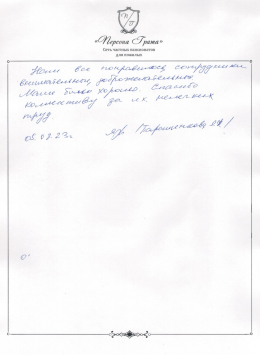 «Персона Грата»
Сеть частных пансионатов
для пожилых
Нам все понравилось сотрудники
внимательные, доброжелательные.
было хорошо. Спасибо
коллективу за их нелегкий
труд